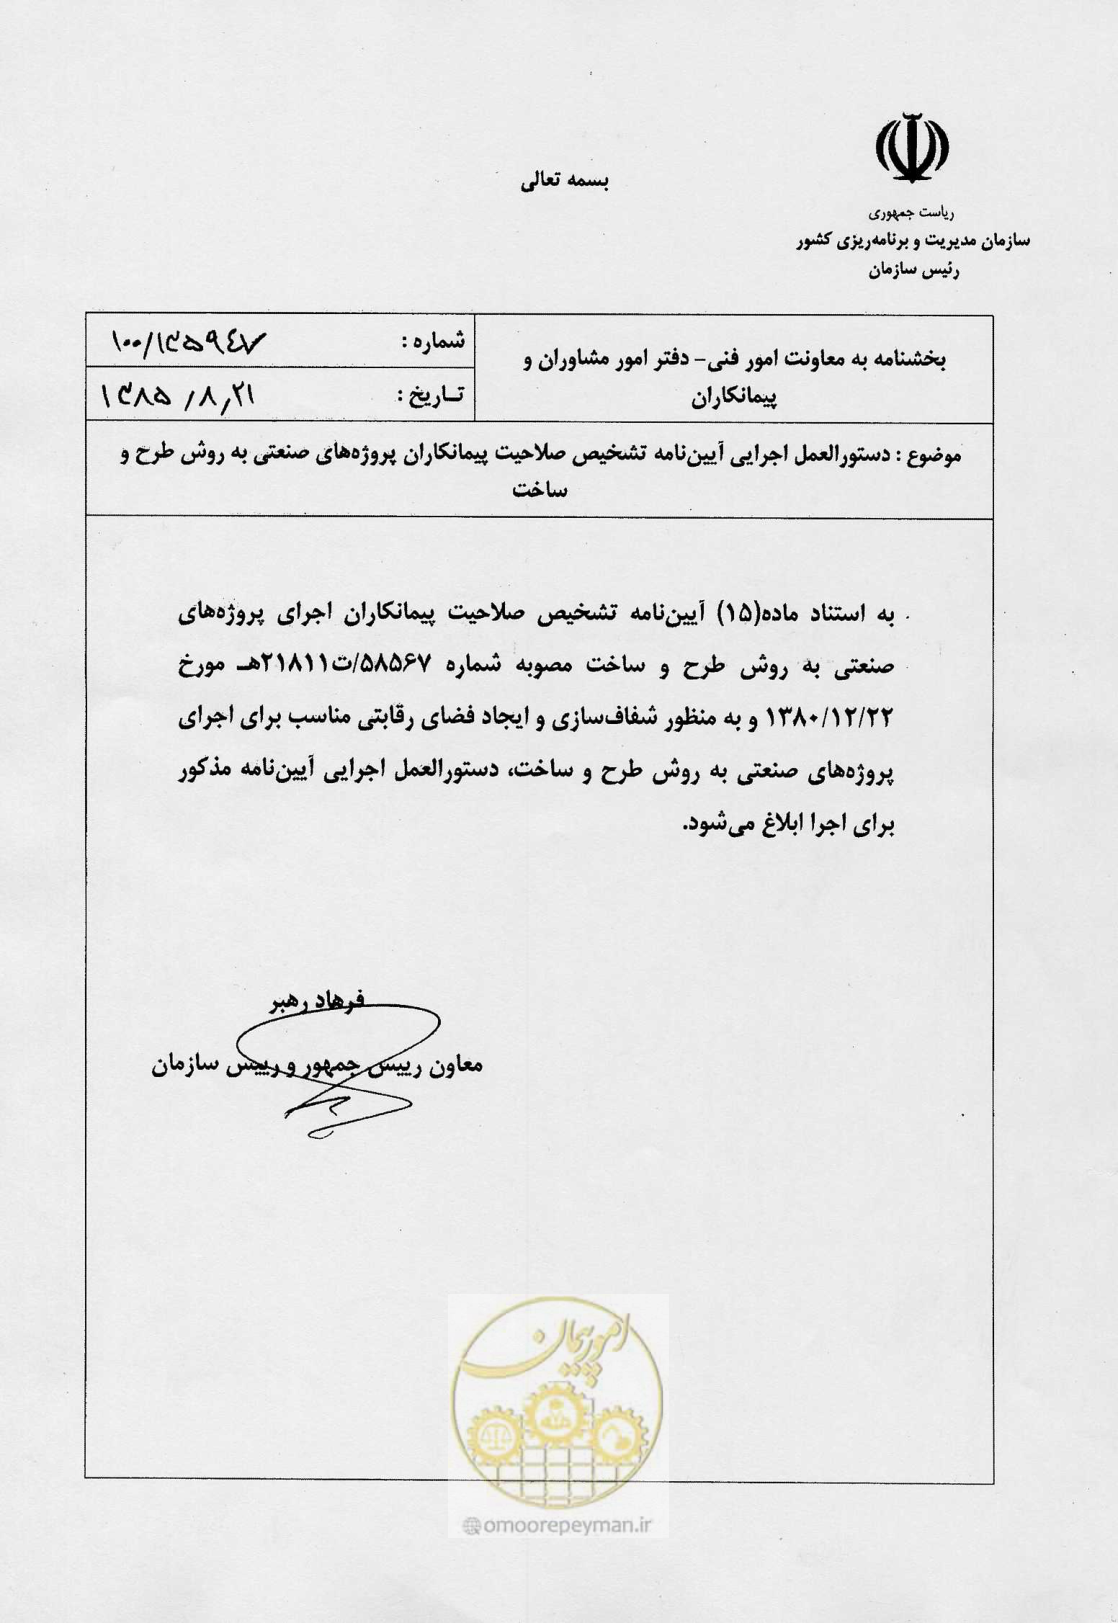 بسمه تعالی
ریاست جمهوری
سازمان مدیریت و برنامه‌ریزی کشور
رئیس سازمان
بخشنامه به معاونت امور فنی- دفتر امور مشاوران و
پیمانکاران
شماره : ۱۰۰/۱۳۵۹۴۷
تـاریخ : ۱۳۸۵/۸/۲۱
موضوع : دستورالعمل اجرایی آیین‌نامه تشخیص صلاحیت پیمانکاران پروژه‌های صنعتی به روش طرح و
ساخت
به استناد ماده(۱۵) آیین‌نامه تشخیص صلاحیت پیمانکاران اجرای پروژه‌های
صنعتی به روش طرح و ساخت مصوبه شماره ۵۸۵۶۷/ت۲۱۸۱۱هـ مورخ
۱۳۸۰/۱۲/۲۲ و به منظور شفاف‌سازی و ایجاد فضای رقابتی مناسب برای اجرای
پروژه‌های صنعتی به روش طرح و ساخت، دستورالعمل اجرایی آیین‌نامه مذکور
برای اجرا ابلاغ می‌شود.
فرهاد رهبر
معاون رییس جمهور و رییس سازمان
امور پیمان
omoorepeyman.ir